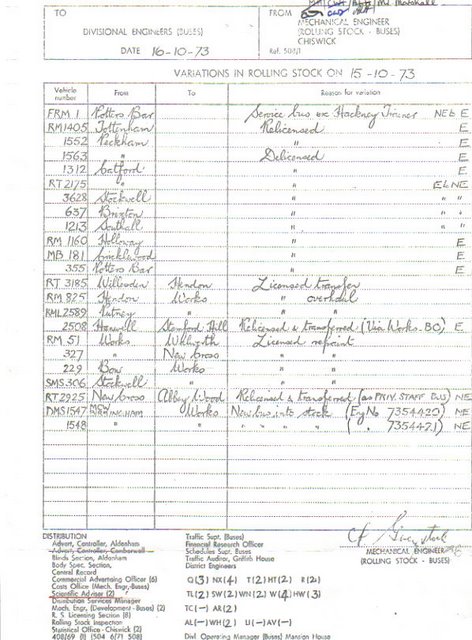 TO
DIVISIONAL ENGINEERS (BUSES)
DATE 16-10-73
FROM
MECHANICAL ENGINEER
(ROLLING STOCK - BUSES)
CHISWICK
VARIATIONS IN ROLLING STOCK ON 15-10-73
Vehicle number From To Reason for variation
FRM 1 Potters Bar Service bus ex Hackney Trainer NE6 E
RM1405 Tottenham Relicensed E
1552 Peckham " E
1563 " Delicensed E
1312 Catford " E
RT2175 " " ELNE
3628 Stockwell " " "
637 Brixton " " "
1213 Southall " " "
RM 1160 Holloway " E
MB 181 Cricklewood " E
355 Potters Bar " E
RT 3185 Willesden Hendon Licensed transfer
RM 825 Hendon Works " overhaul
RML2589 Putney " " "
2508 Hanwell Stamford Hill Relicensed & transferred (Via Works. BC) E
RM 51 Works Walworth Licensed repaint
327 " New Cross " "
229 Bow Works " "
SMS.306 Stockwell " " "
RT2925 New Cross Abbey Wood Relicensed & transferred (as PRIV. STAFF BUS) NE
DMS1547 MCW BIRMINGHAM Works New bus into stock (Eng No 7354420) NE
1548 " " " " " " ( " 7354421) NE
DISTRIBUTION
Advert. Controller, Aldenham
Advert. Controller, Camberwell
Blinds Section, Aldenham
Body Spec. Section,
Central Record
Commercial Advertising Officer (6)
Costs Office (Mech. Engr-Buses)
Scientific Adviser (2)
Distribution Services Manager
Mech. Engr. (Development - Buses) (2)
R. S. Licensing Section (8)
Rolling Stock Inspection
Statistical Office - Chiswick (2)
408/69 (1) (504 6/71 508)
Traffic Supt. (Buses)
Financial Research Officer
Schedules Supt. Buses
Traffic Auditor, Griffith House
District Engineers
Q(3) NX(4) T(2) HT(2) R(2)
TL(2) SW(2) WN(2) W(4) HW(3)
TC(-) AR(2)
AL(-) WH(2) U(-) AV(-)
Divl. Operating Manager (Buses) Mansion House
MECHANICAL ENGINEER
(ROLLING STOCK - BUSES)